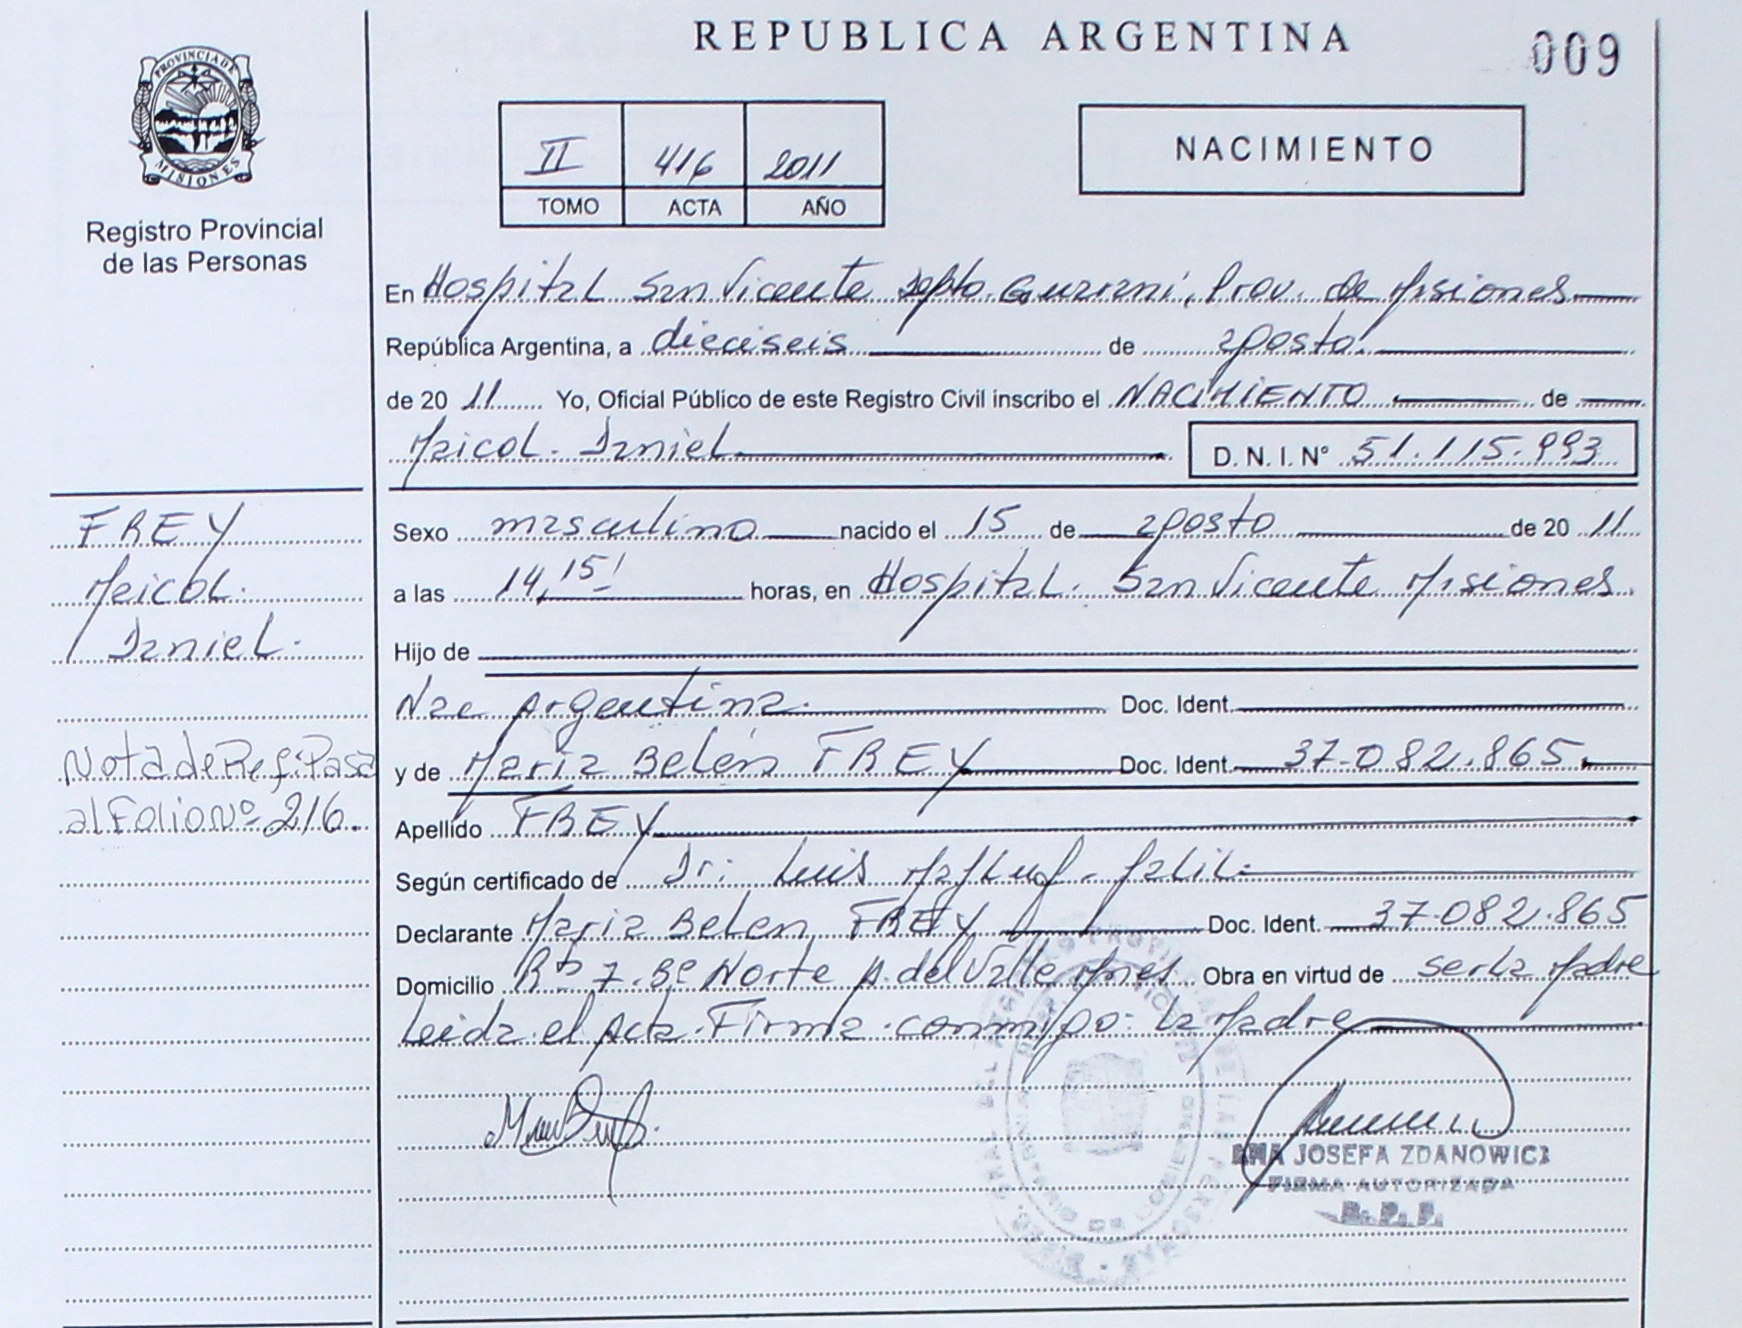 REPUBLICA ARGENTINA
009
PROVINCIA DE
MISIONES
Registro Provincial
de las Personas
II 416 2011
TOMO ACTA AÑO
NACIMIENTO
En Hospital San Vicente Depto. Guarani, Prov. de Misiones
República Argentina, a dieciseis de agosto.
de 20 11 Yo, Oficial Público de este Registro Civil inscribo el NACIMIENTO de
Maicol Daniel
D. N. I. Nº 51.115.993
FREY
Maicol.
Daniel.
Nota de Ref: Pasa
al Folio Nº 216.
Sexo masculino nacido el 15 de agosto de 20 11
a las 14,15' horas, en Hospital San Vicente Misiones.
Hijo de
Nac Argentina. Doc. Ident.
y de Maria Belén FREY Doc. Ident. 37.082.865.
Apellido FREY
Según certificado de Dr: Luis
Declarante Maria Belen FREY Doc. Ident. 37.082.865
Domicilio 7 Norte del Valle Obra en virtud de ser la Madre
Leida el Acta Firma conmigo: la Madre
ANA JOSEFA ZDANOWICZ
FIRMA AUTORIZADA
R. P. P.